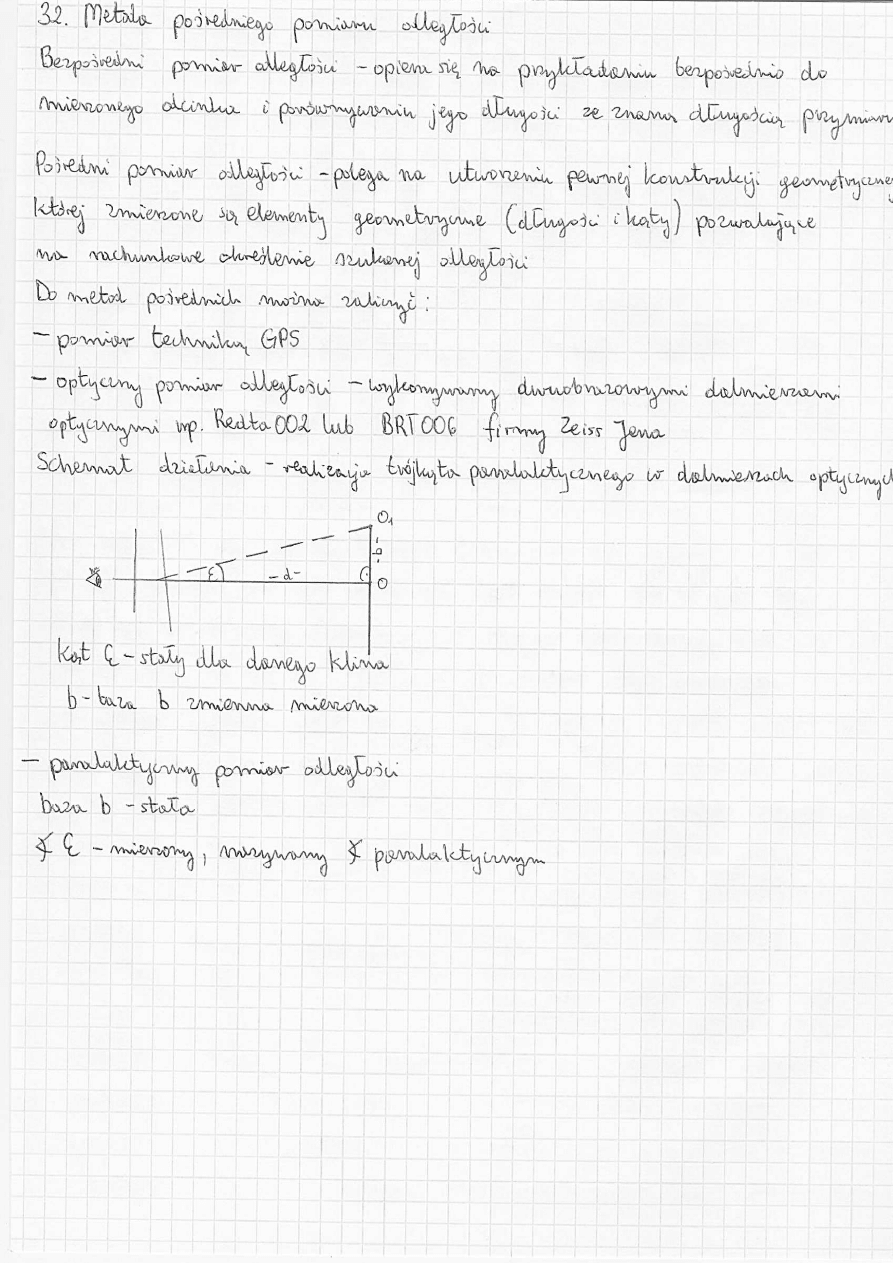 32. Metoda pośredniego pomiaru odległości
Bezpośredni pomiar odległości - opiera się na przykładaniu bezpośrednio do
mierzonego odcinka i porównywaniu jego długości ze znaną długością przymiaru
Pośredni pomiar odległości - polega na utworzeniu pewnej konstrukcji geometrycznej
której zmierzone są elementy geometryczne (długości i kąty) pozwalające
na rachunkowe określenie szukanej odległości
Do metod pośrednich można zaliczyć:
- pomiar techniką GPS
- optyczny pomiar odległości - wykonywany dwuobrazowymi dalmierzami
optycznymi np. Redta 002 lub BRT 006 firmy Zeiss Jena
Schemat działania - realizacja trójkąta paralaktycznego w dalmierzach optycznych
O₁
b
ε
-d-
O
Kąt ε - stały dla danego klina
b - baza b zmienna mierzona
- paralaktyczny pomiar odległości
baza b - stała
∢ ε - mierzony, nazywany ∢ paralaktycznym